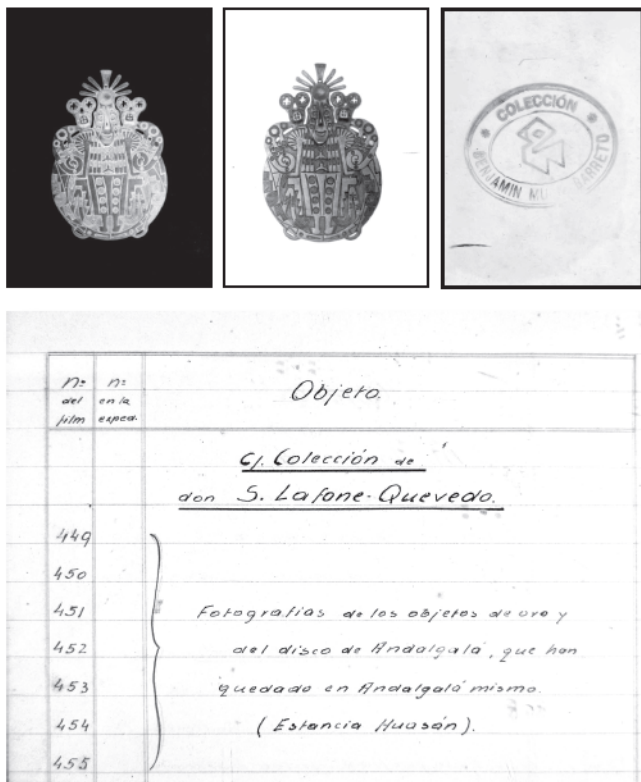 COLECCIÓN
BENJAMIN MU BARRETO
nº
del
film
nº
en la
exped.
Objeto.
C/. Colección de
don S. Lafone-Quevedo.
449
450
451
452
453
454
455
Fotografias de los objetos de oro y
del disco de Andalgalá, que han
quedado en Andalgalá mismo.
(Estancia Huasán).